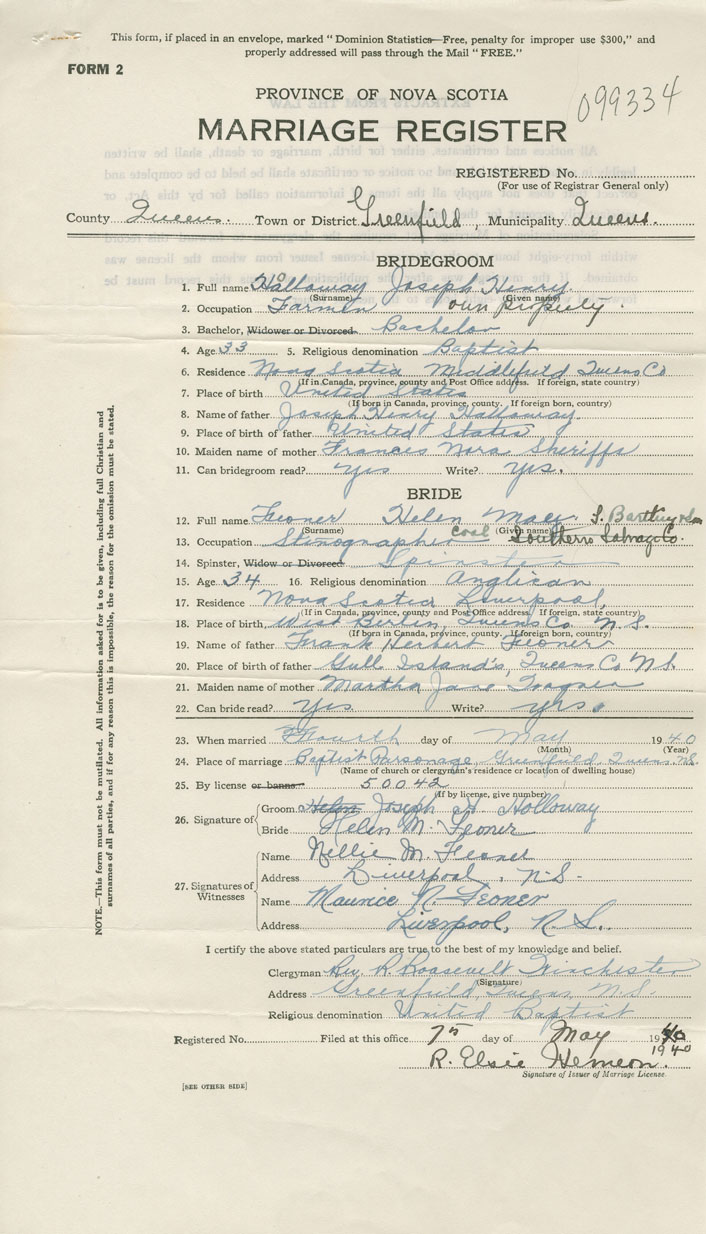 This form, if placed in an envelope, marked "Dominion Statistics—Free, penalty for improper use $300," and
properly addressed will pass through the Mail "FREE."
FORM 2
PROVINCE OF NOVA SCOTIA
099334
MARRIAGE REGISTER
REGISTERED No.
(For use of Registrar General only)
County Queens. Town or District Greenfield, Municipality Queens.
BRIDEGROOM
1. Full name Halloway Joseph Henry
(Surname) (Given name)
2. Occupation Farmer own property.
3. Bachelor, Widower or Divorced Bachelor
4. Age 33 5. Religious denomination Baptist
6. Residence Nova Scotia Middlefield Queens Co
(If in Canada, province, county and Post Office address. If foreign, state country)
7. Place of birth United States
(If born in Canada, province, county. If foreign born, country)
8. Name of father Joseph Henry Halloway
9. Place of birth of father United States
10. Maiden name of mother Frances Nora Sheriffs
11. Can bridegroom read? yes Write? yes.
BRIDE
12. Full name Feoner Helen Macy
(Surname) (Given name)
13. Occupation Stenographer coal Southern Salvage Co.
14. Spinster, Widow or Divorced Spinster
15. Age 34 16. Religious denomination Anglican
17. Residence Nova Scotia Liverpool
(If in Canada, province, county and Post Office address. If foreign, state country)
18. Place of birth West Berlin, Queens Co N.S.
(If born in Canada, province, county. If foreign born, country)
19. Name of father Frank Herbert Feoner
20. Place of birth of father Gull Island's, Queens Co N.S.
21. Maiden name of mother Martha Jane
22. Can bride read? Yes. Write? yes.
23. When married Fourth day of May 1940
(Month) (Year)
24. Place of marriage Baptist Parsonage, Greenfield, Queens N.S.
(Name of church or clergymen's residence or location of dwelling house)
25. By license or banns 50042
(If by license, give number)
26. Signature of
Groom Helen Joseph H. Holloway
Bride Helen M. Feoner
27. Signatures of Witnesses
Name Nellie M. Feoner
Address Liverpool, N.S.
Name Maurice N. Feoner
Address Liverpool, N.S.
I certify the above stated particulars are true to the best of my knowledge and belief.
Clergyman Rev. R. Roosevelt Winchester
(Signature)
Address Greenfield, Queens, N.S.
Religious denomination United Baptist
Registered No. Filed at this office 7th day of May 1940
1940
R. Elsie Hemeon.
Signature of Issuer of Marriage License
[SEE OTHER SIDE]
NOTE.—This form must not be mutilated. All information asked for is to be given, including full Christian and
surnames of all parties, and if for any reason this is impossible, the reason for the omission must be stated.